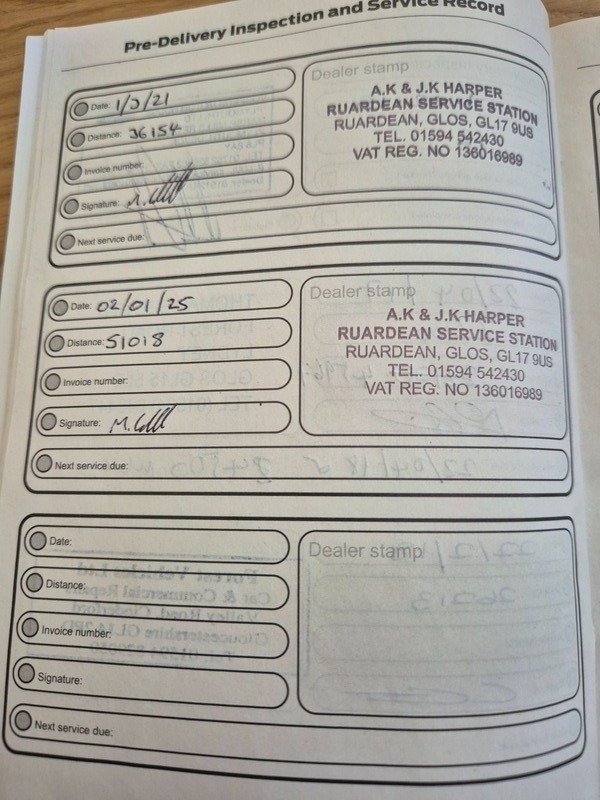 Pre-Delivery Inspection and Service Record
Date: 1/3/21
Distance: 36154
Invoice number:
Signature:
Next service due:
Dealer stamp
A.K & J.K HARPER
RUARDEAN SERVICE STATION
RUARDEAN, GLOS, GL17 9US
TEL. 01594 542430
VAT REG. NO 136016989
Date: 02/01/25
Distance: 51018
Invoice number:
Signature:
Next service due:
Dealer stamp
A.K & J.K HARPER
RUARDEAN SERVICE STATION
RUARDEAN, GLOS, GL17 9US
TEL. 01594 542430
VAT REG. NO 136016989
Date:
Distance:
Invoice number:
Signature:
Next service due:
Dealer stamp